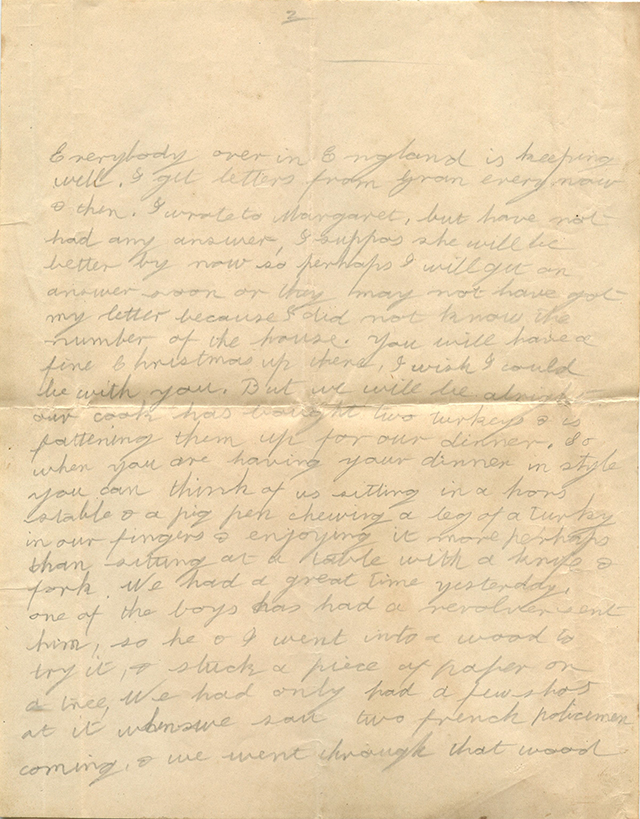 2
Everybody over in England is keeping
well. I get letters from Gran every now
& then. I wrote to Margaret, but have not
had any answer, I suppos she will be
better by now so perhaps I will get an
answer soon or they may not have got
my letter because I did not know the
number of the house. You will have a
fine Christmas up there, I wish I could
be with you. But we will be alright
our cook has bought two turkeys & is
fattening them up for our dinner. So
when you are having your dinner in style
you can think of us sitting in a hors
stable & a pig pen chewing a leg of a turky
in our fingers & enjoying it more perhaps
than sitting at a table with a knife &
fork. We had a great time yesterday,
one of the boys has had a revolver sent
him, so he & I went into a wood to
try it, & stuck a piece of paper on
a tree, We had only had a few shots
at it when we saw two french policemen
coming, & we went through that wood